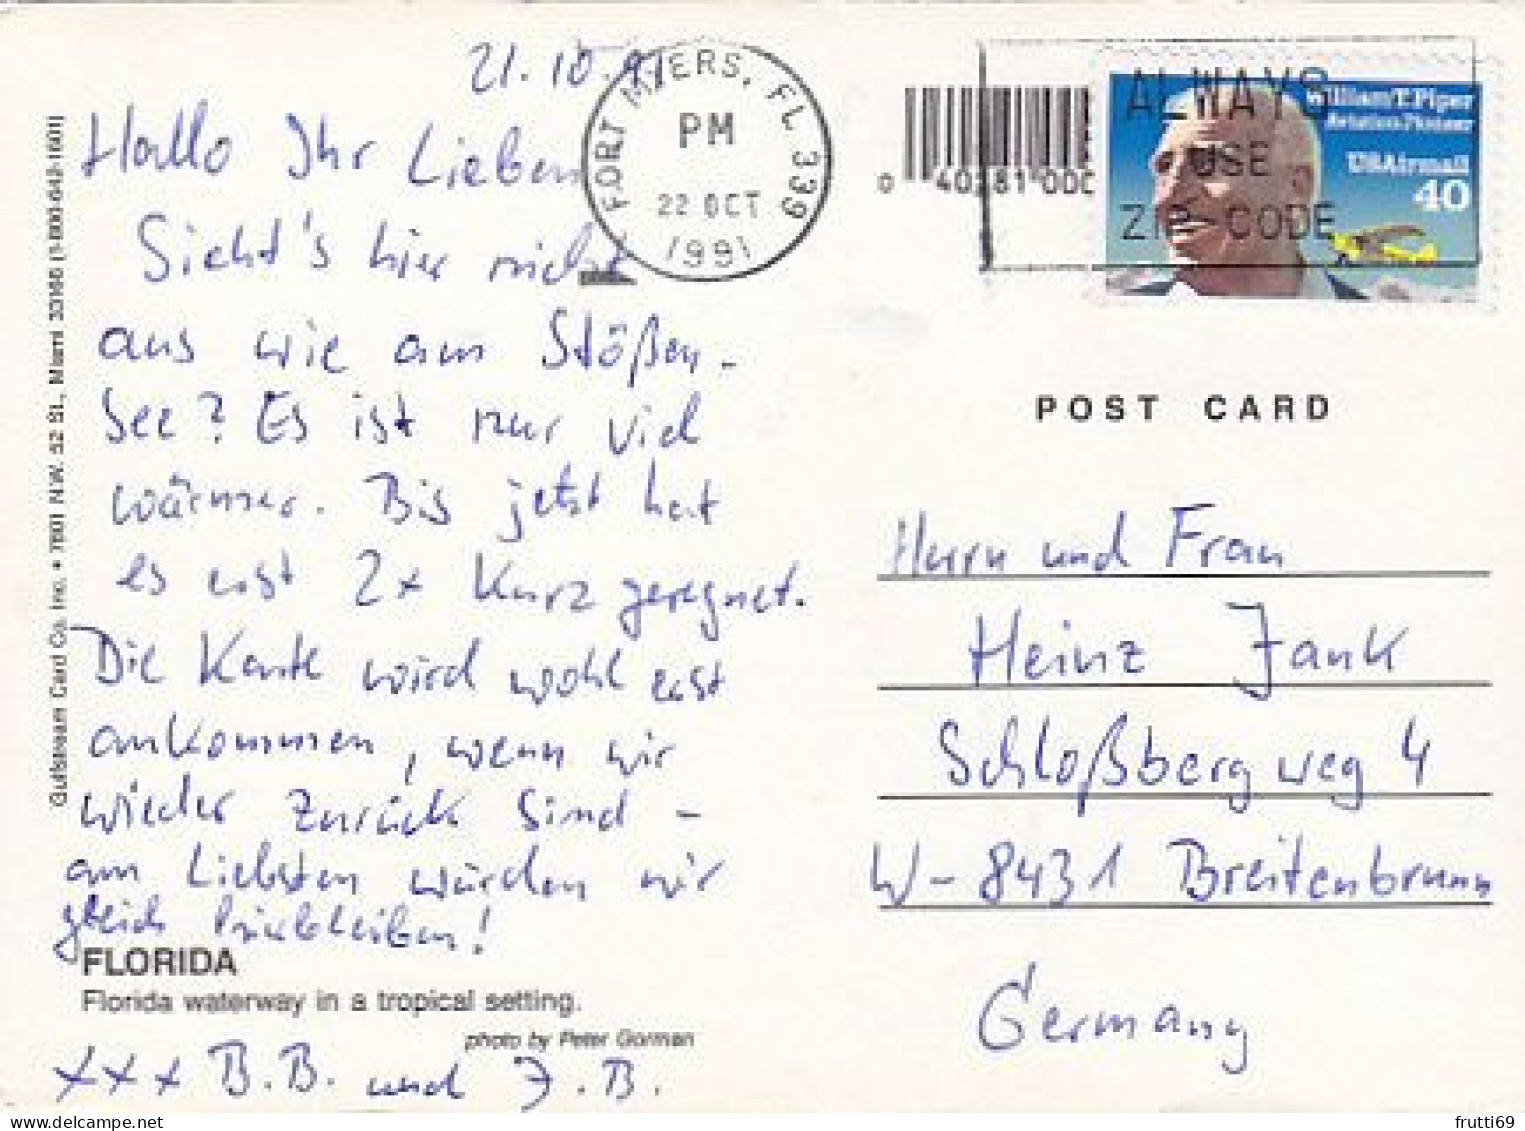 21.10.91
Hallo Ihr Lieben
Sieht's hier nicht
aus wie am Stößen-
see? Es ist nur viel
wärmer. Bis jetzt hat
es erst 2x kurz geregnet.
Die Karte wird wohl erst
ankommen, wenn wir
wieder zurück sind -
am Liebsten würden wir
gleich hierbleiben!
FLORIDA
Florida waterway in a tropical setting.
photo by Peter Gorman
xxx B.B. und J.B.
Gulfstream Card Co., Inc. • 7601 N.W. 52 St., Miami 33166 (1-800-642-1601)
FORT MYERS, FL 339
PM
22 OCT
1991
0 40281 000
ALWAYS
USE
ZIP CODE
William T. Piper
Aviation Pioneer
USAirmail
40
POST CARD
Herrn und Frau
Heinz Jank
Schloßbergweg 4
W-8431 Breitenbrunn
Germany
frutti69